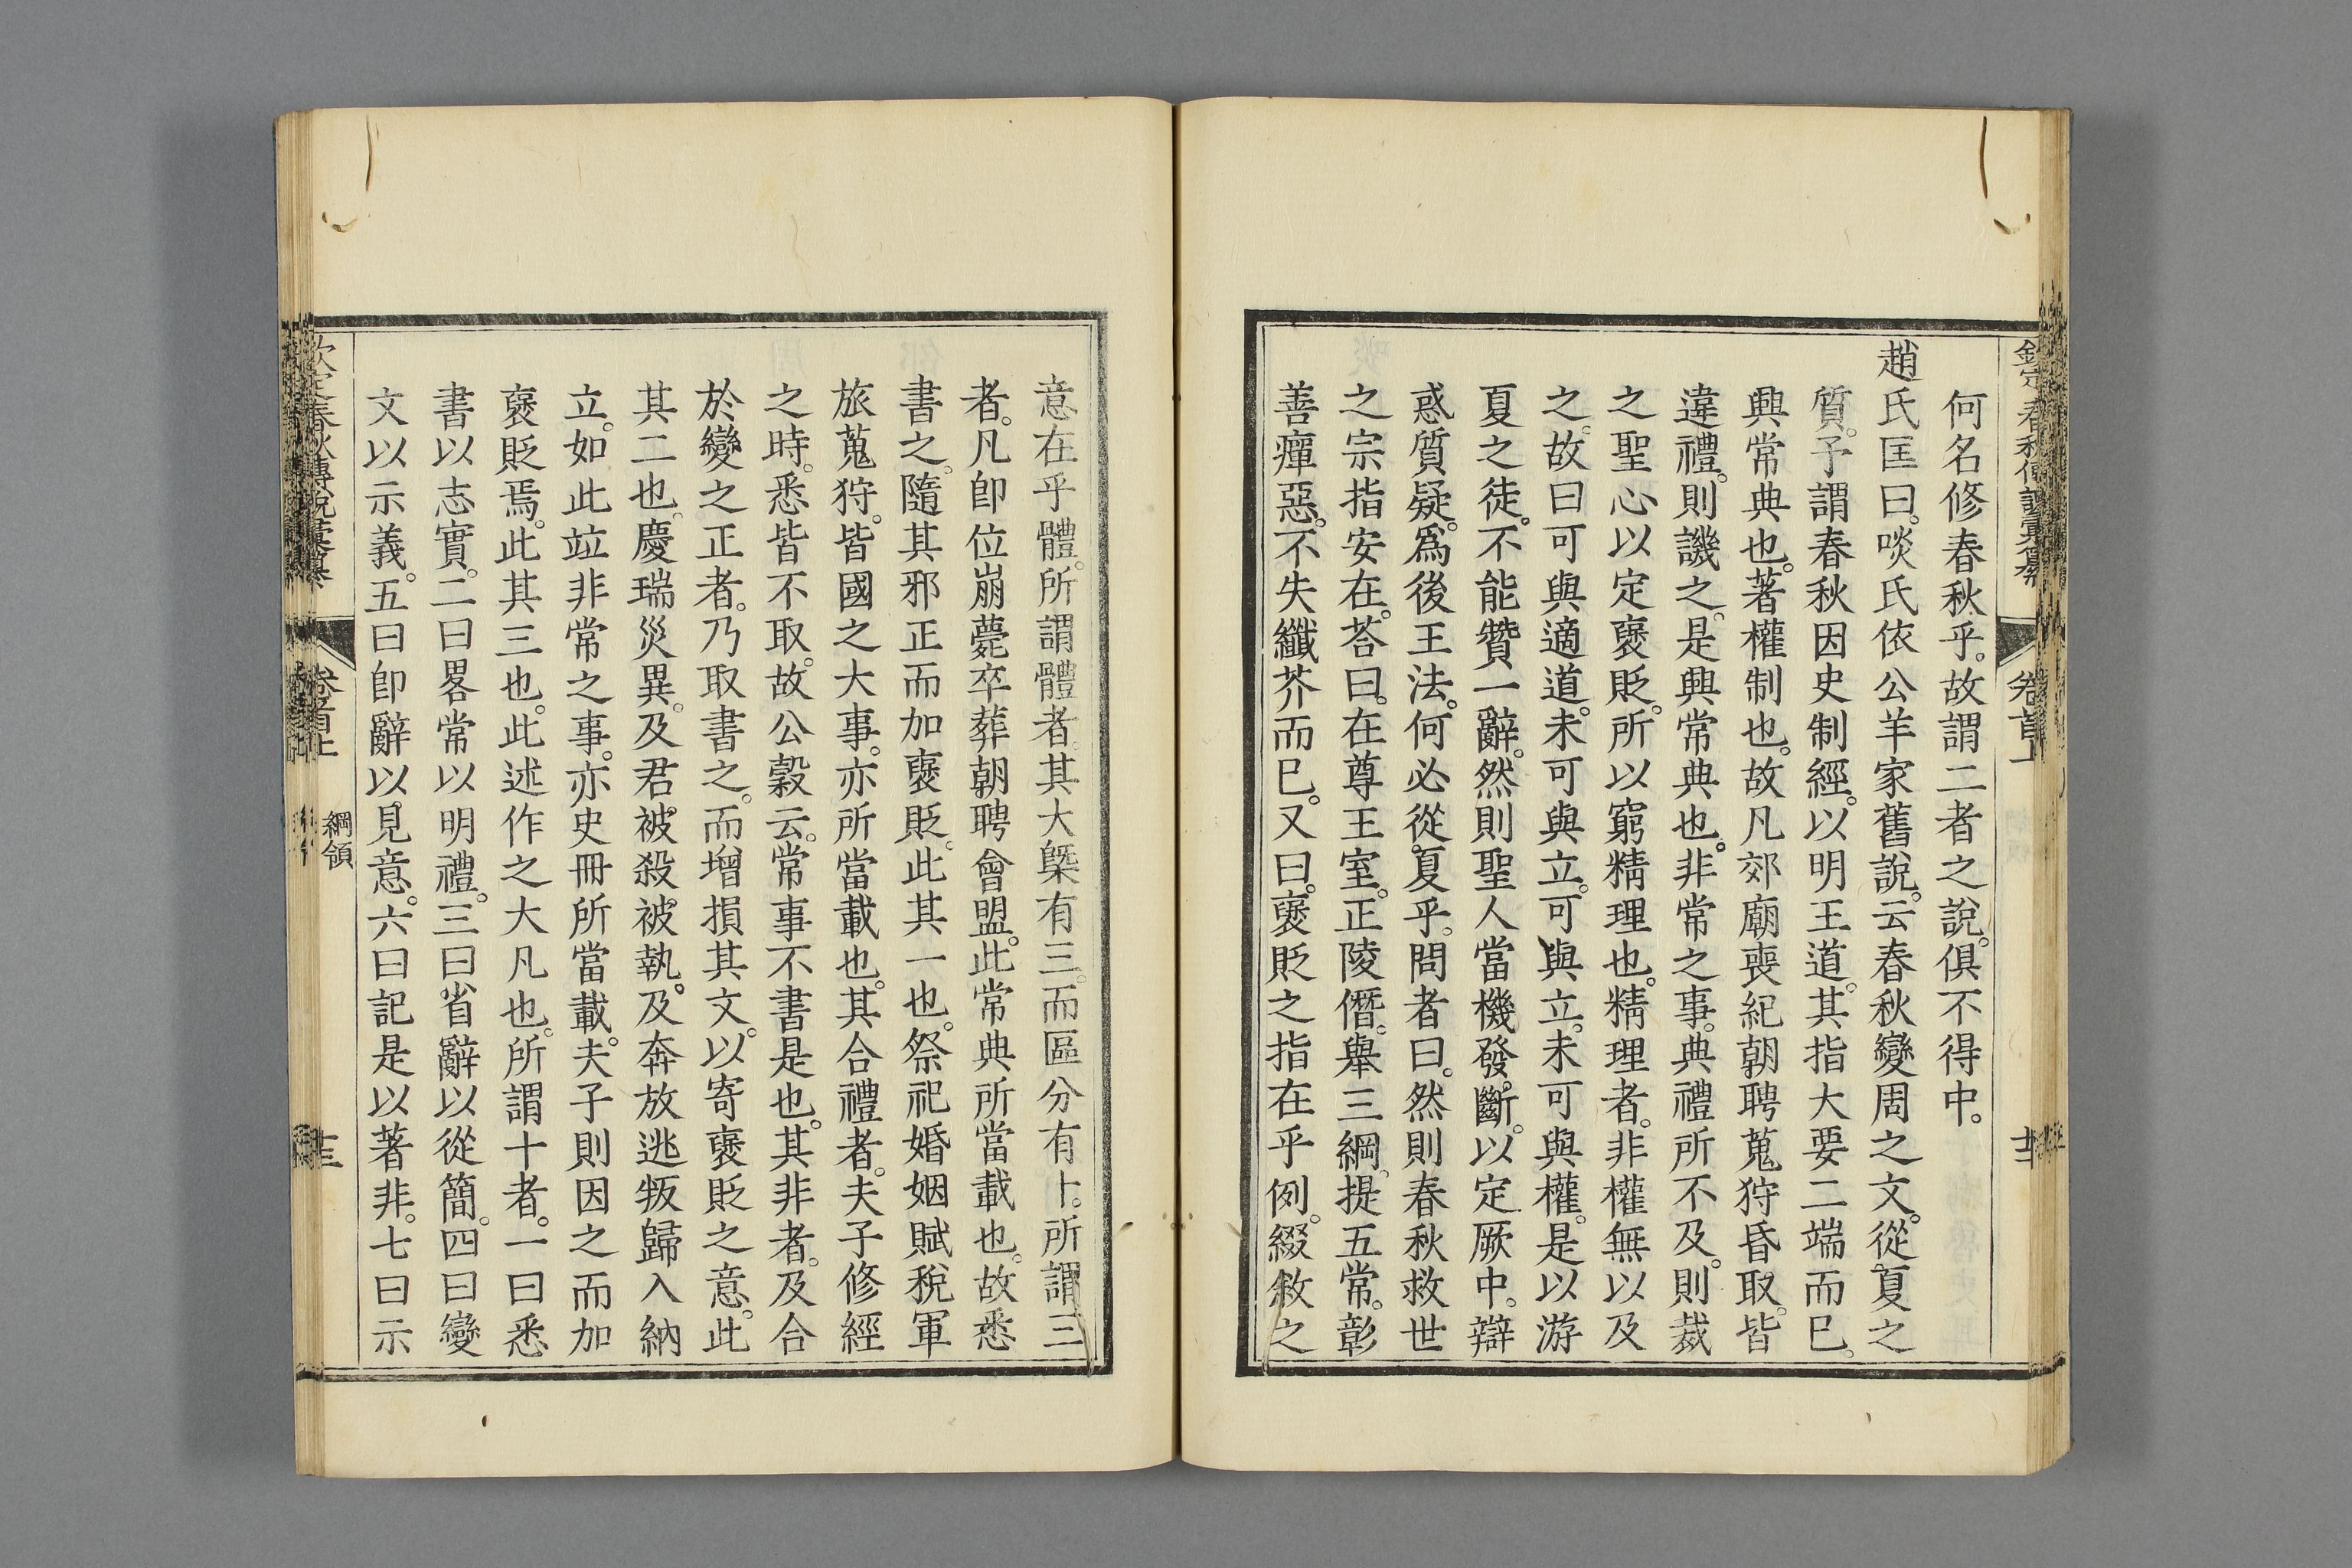 何名修春秋乎。故謂二者之說。俱不得中。
趙氏匡曰。啖氏依公羊家舊說。云春秋變周之文。從夏之
質。予謂春秋因史制經。以明王道。其指大要二端而已。
興常典也。著權制也。故凡郊廟喪紀朝聘蒐狩昏取。皆
違禮。則譏之。是興常典也。非常之事。典禮所不及。則裁
之聖心以定襃貶。所以窮精理也。精理者。非權無以及
之。故曰可與適道。未可與立。可與立。未可與權。是以游
夏之徒。不能贊一辭。然則聖人當機發斷。以定厥中。辯
惑質疑。爲後王法。何必從夏乎。問者曰。然則春秋救世
之宗指安在。荅曰。在尊王室。正陵僭。舉三綱。提五常。彰
善癉惡。不失纖芥而已。又曰。襃貶之指在乎例。綴敘之
意在乎體。所謂體者。其大槩有三。而區分有十。所謂三
者。凡卽位崩薨卒葬朝聘會盟。此常典所當載也。故悉
書之。隨其邪正而加襃貶。此其一也。祭祀婚姻賦稅軍
旅蒐狩。皆國之大事。亦所當載也。其合禮者。夫子修經
之時。悉皆不取。故公穀云。常事不書是也。其非者。及合
於變之正者。乃取書之。而增損其文。以寄襃貶之意。此
其二也。慶瑞災異。及君被殺被執。及奔放逃叛歸入納
立。如此竝非常之事。亦史冊所當載。夫子則因之而加
襃貶焉。此其三也。此述作之大凡也。所謂十者。一曰悉
書以志實。二曰畧常以明禮。三曰省辭以從簡。四曰變
文以示義。五曰卽辭以見意。六曰記是以著非。七曰示
欽定春秋傳說彙纂
卷首上
綱領